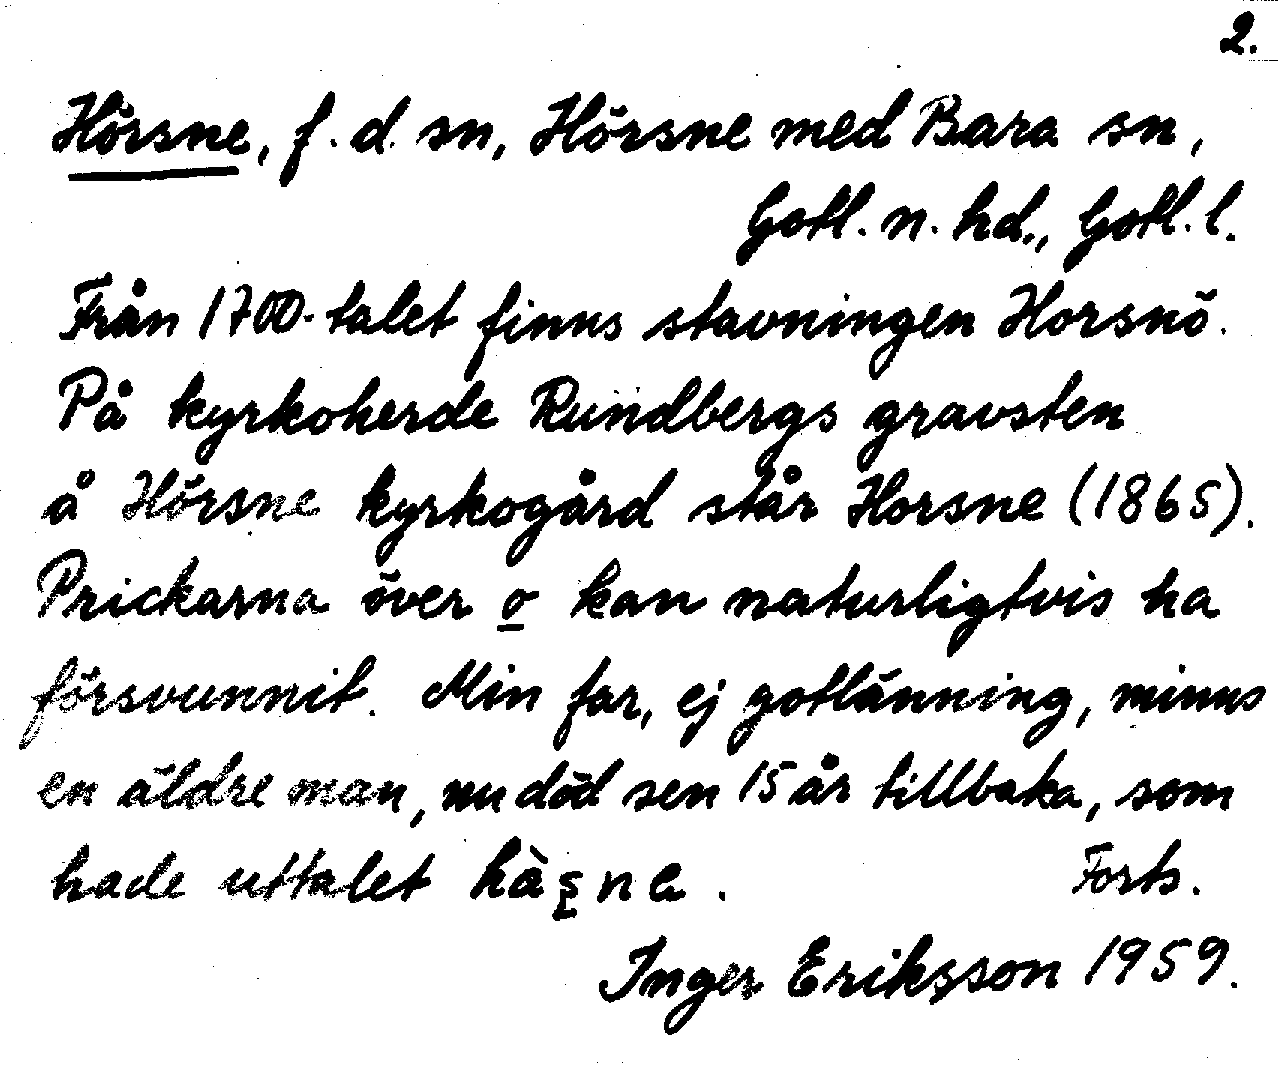 2.
Hörsne, f. d. sn, Hörsne med Bara sn,
Gotl. n. hd., Gotl. l.
Från 1700-talet finns stavningen Horsnö.
På kyrkoherde Rundbergs gravsten
å Hörsne kyrkogård står Horsne (1865).
Prickarna över o kan naturligtvis ha
försvunnit. Min far, ej gotlänning, minns
en äldre man, nu död sen 15 år tillbaka, som
hade uttalet Forts.
Inger Eriksson 1959.